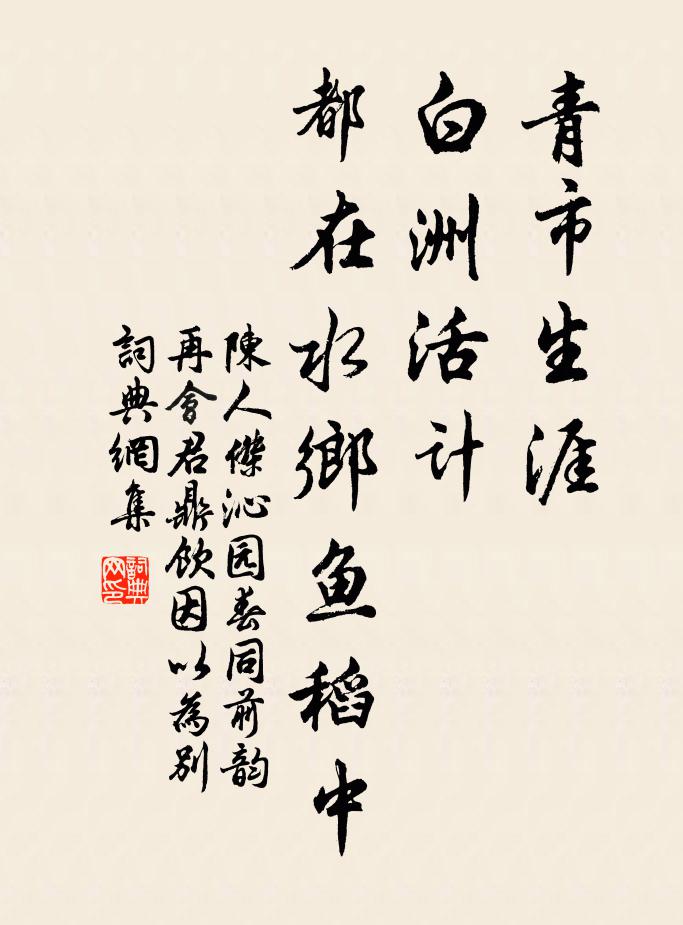 青市生涯
白洲活计
都在水鄉鱼稻中
陳人傑沁园春同前韵
再會君鼎飲因以為別
詞典網集
詞典网印